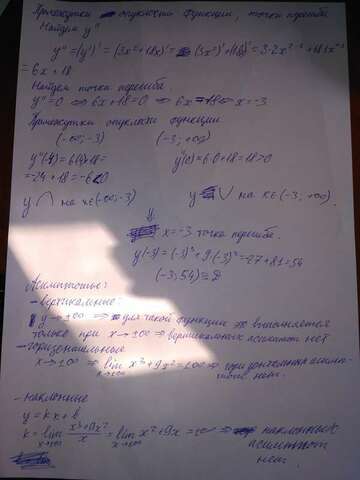 Промежутки выпуклости функции, точки перегиба
Найдем y''
y'' = (y')' = (3x²+18x)' = (3x²)' + (18x)' = 3·2x²⁻¹ + 18·1x¹⁻¹
= 6x + 18
Найдем точки перегиба.
y''=0 ⇔ 6x+18=0 ⇔ 6x=-18 ⇔ x=-3
Промежутки выпуклости функции
(-∞;-3) (-3; +∞)
y''(-4) = 6(-4)+18= y''(0)=6·0+18=18>0
=-24+18=-6<0
y ∩ на x∈(-∞;-3) y ∪ на x∈(-3; +∞)
⇓
x=-3 точка перегиба.
y(-3)=(-3)³+9(-3)²=-27+81=54
(-3;54)
Асимптоты:
- вертикальные:
y→±∞ ⇒ для такой функции это выполняется
только при x→±∞ ⇒ вертикальных асимптот нет
- горизонтальные
x→±∞ ⇒ lim x³+9x²=±∞ ⇒ горизонтальных асимп-
x→±∞ тот нет.
- наклонные
y=kx+b
k=lim x³+9x²/x = lim x²+9x=∞ ⇒ наклонных
x→±∞ x→±∞ асимптот
нет.